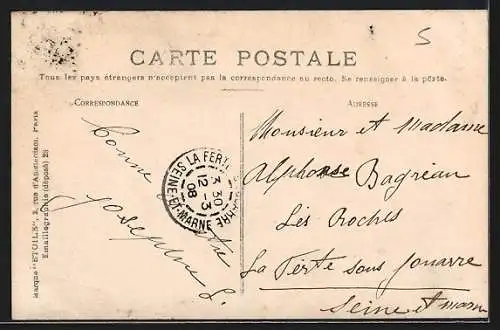 5
CARTE POSTALE
Tous les pays étrangers n'acceptent pas la correspondance au recto. Se renseigner à la poste.
CORRESPONDANCE
ADRESSE
Bonne
Joséphine L.
Monsieur et Madame
Alphonse Bagréau
Les Roches
La Ferté sous Jouarre
Seine et Marne
LA FERTÉ
3 30
12 - 3
08
SEINE-ET-MARNE
Marque "ETOILE", 3, rue d'Amsterdam, Paris
Emaillographie (déposé) 28